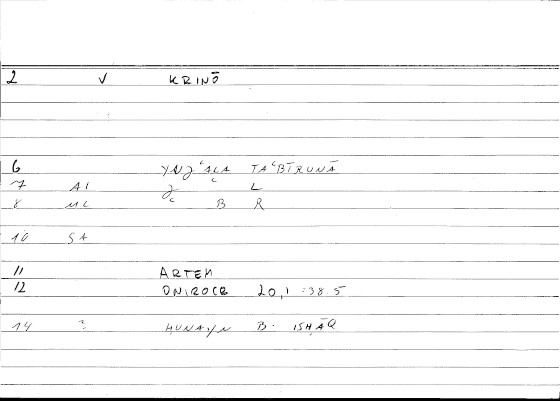 2 V KRINŌ
6 YNJʿALA TAʿBĪRUNĀ
7 AI J ʿ L
8 ML ʿ B R
10 SA
11 ARTEM
12 ONIROCR 20,1 :38.5
14 3 HUNAYN B. ISḤĀQ